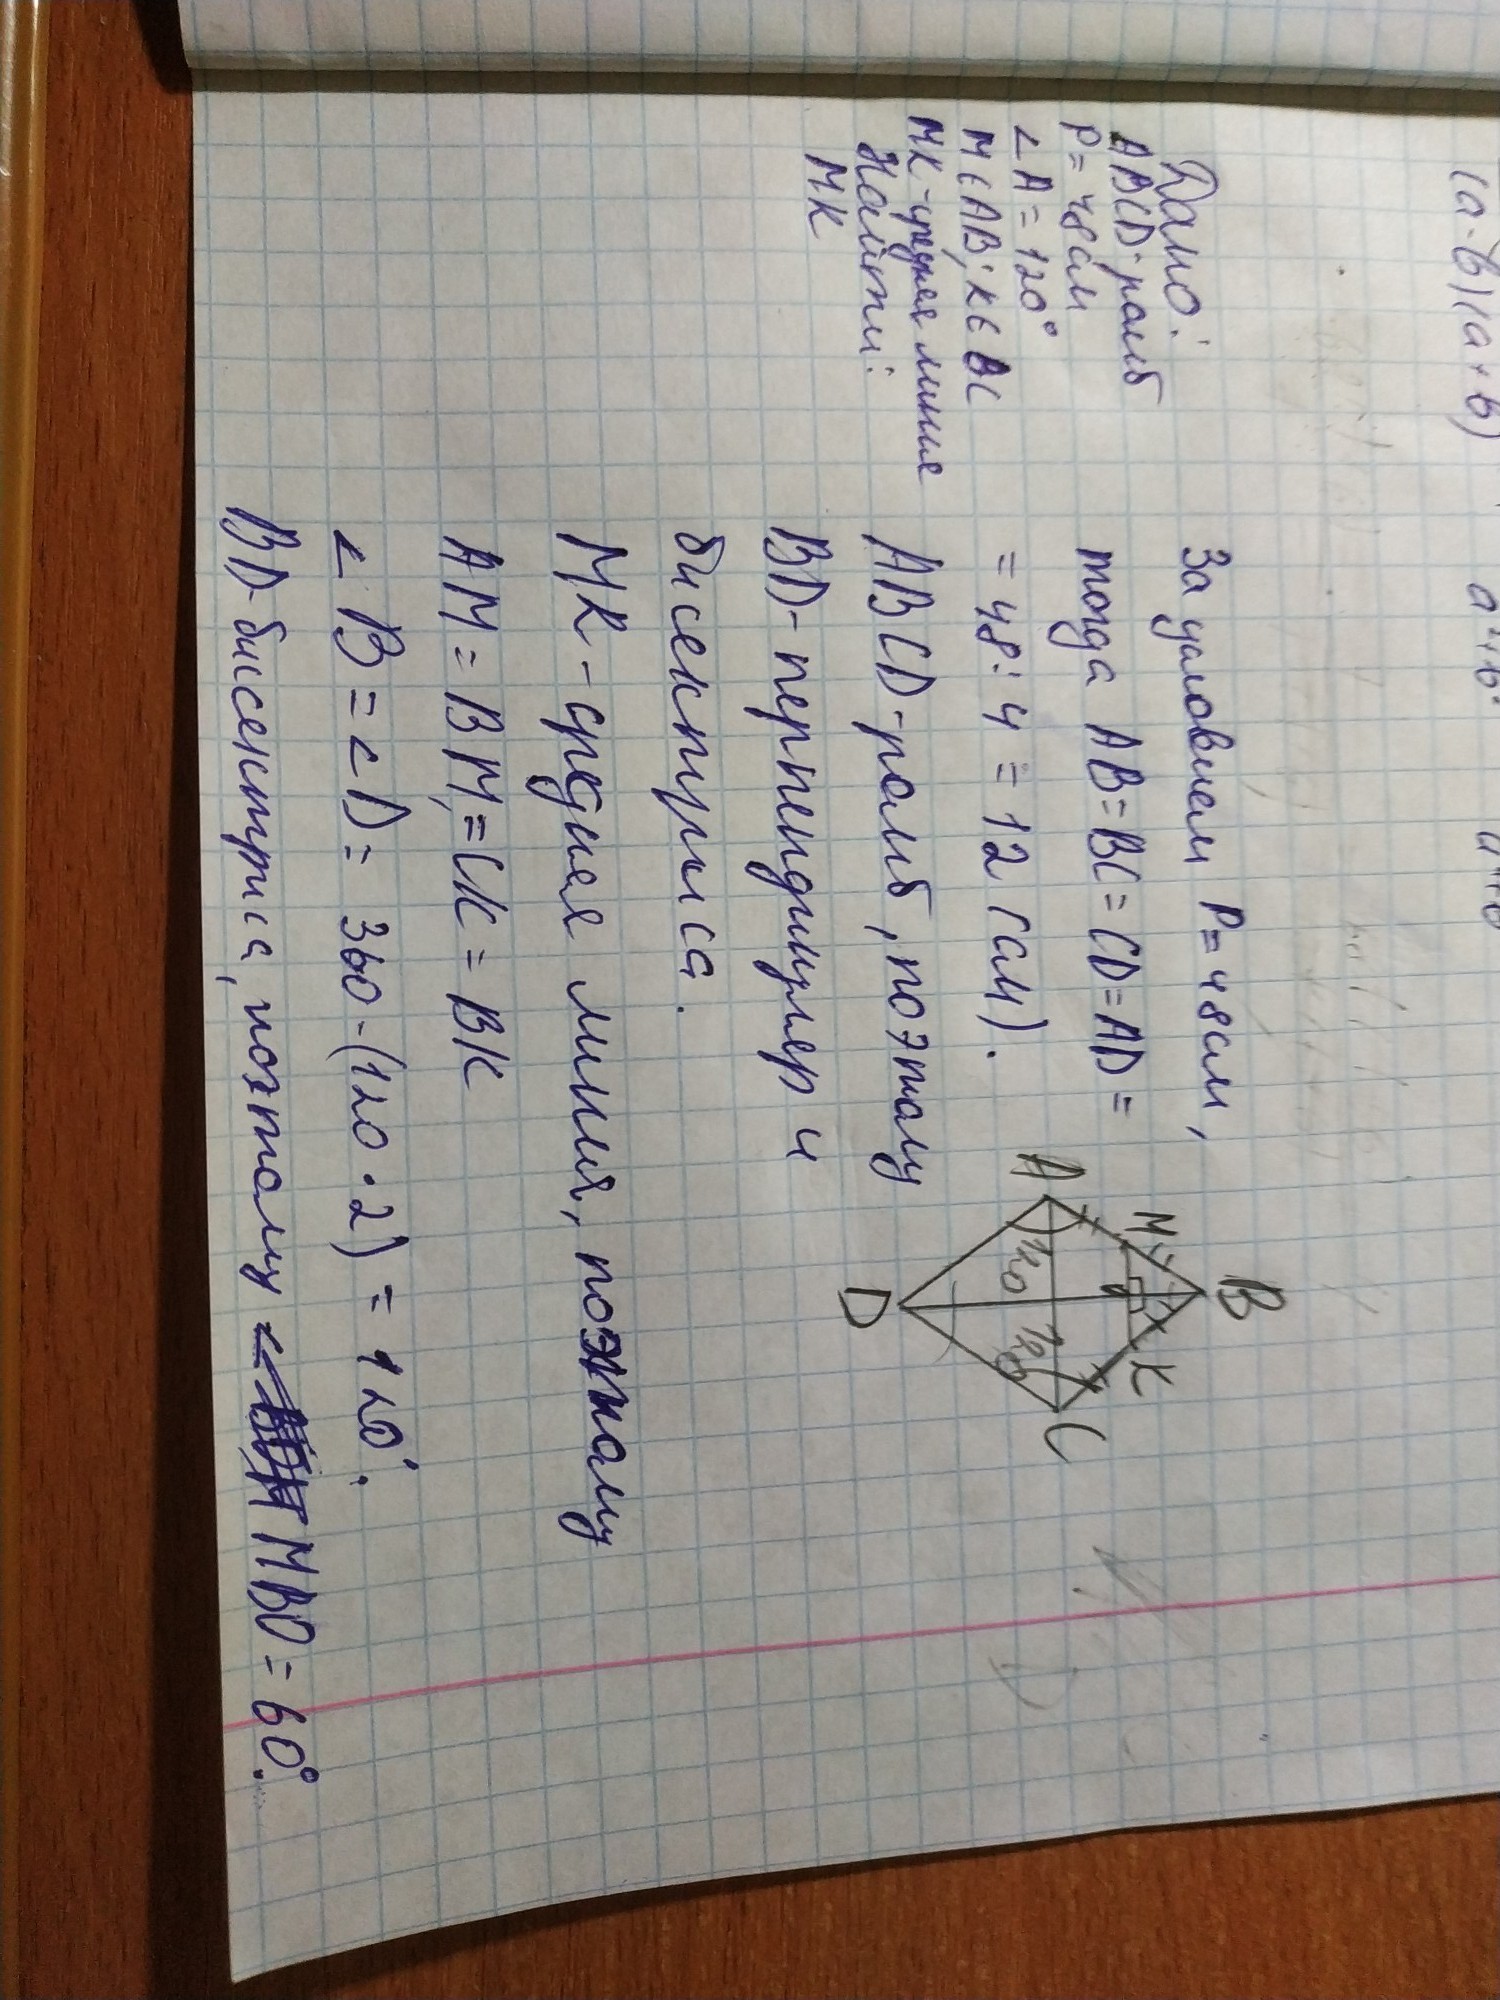 (a-b)(a+b)
Дано:
ABCD-ромб
P=48см
<A=120°
M∈AB; K∈BC
MK-средняя линия
Найти:
MK
За условием P=48см,
тогда AB=BC=CD=AD=
=48:4=12(см).
ABCD-ромб, поэтому
BD-перпендикуляр и
бисектриса.
MK-средняя линия, поэтому
AM=BM=CK=BK
<B=<D=360-(120·2)=120°.
BD-бисектриса, поэтому < MBO=60°.
B
M
K
A
C
D